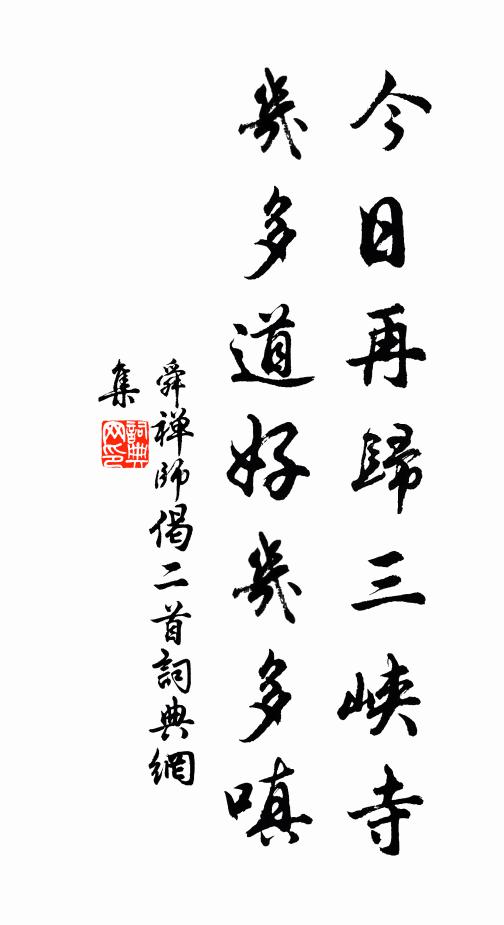 今日再歸三峽寺
幾多道好幾多嗔
舜禅師偈二首詞典網
集
詞典
网印